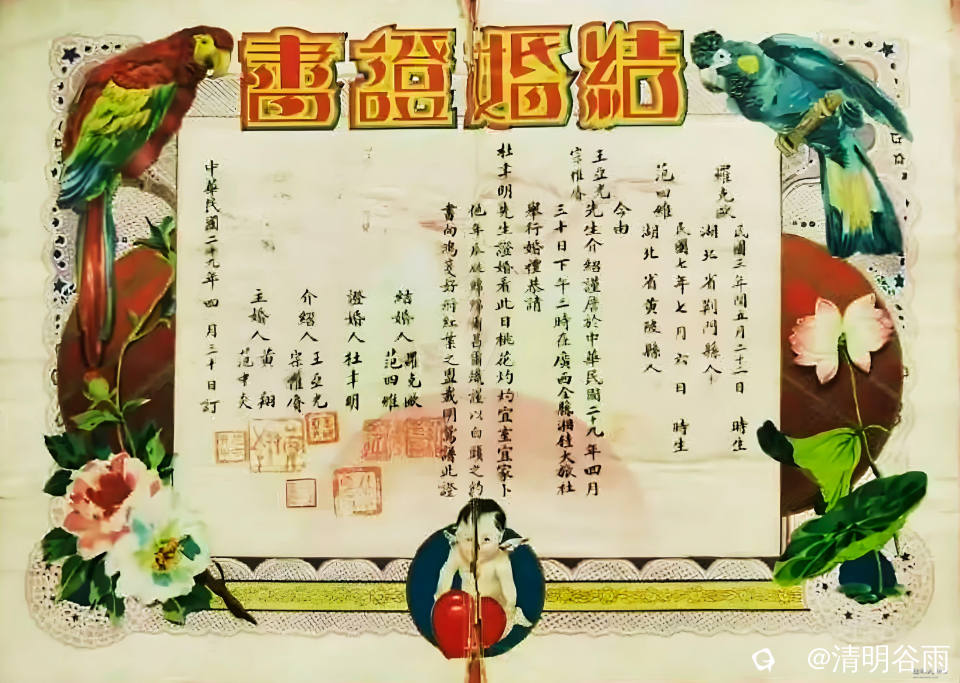 結婚證書
羅克歐
民國三年閏五月二十二日 時生
湖北省荊門縣人
范四維
民國七年七月六日 時生
湖北省黃陂縣人
今由
王亞光
宗惟
先生介紹謹詹於中華民國二十九年四月
三十日下午二時在廣西全縣湘桂大旅社
舉行婚禮恭請
杜聿明先生證婚看此日桃花灼灼宜室宜家卜
他年瓜瓞綿綿爾昌爾熾謹以白頭之約
書向鴻箋好將紅葉之盟載明鴛譜此證
結婚人
羅克歐
范四維
證婚人 杜聿明
介紹人
王亞光
宗惟
主婚人
黃翔
范中
中華民國二十九年四月三十日訂
@清明谷雨